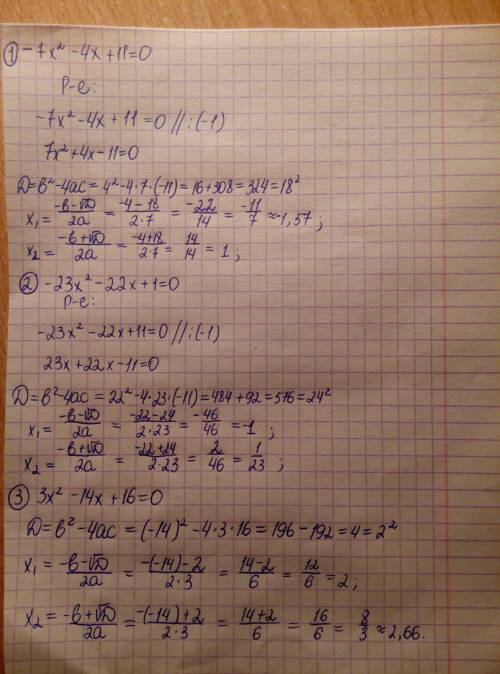 ① -7x² - 4x + 11 = 0
Р-е:
-7x² - 4x + 11 = 0 // :(-1)
7x² + 4x - 11 = 0
D = b² - 4ac = 4² - 4·7·(-11) = 16 + 308 = 324 = 18²
x₁ = (-b-√D)/2a = (-4-18)/(2·7) = -22/14 = -11/7 ≈ -1,57 ;
x₂ = (-b+√D)/2a = (-4+18)/(2·7) = 14/14 = 1 ;
② -23x² - 22x + 1 = 0
Р-е:
-23x² - 22x + 11 = 0 // :(-1)
23x + 22x - 11 = 0
D = b² - 4ac = 22² - 4·23·(-11) = 484 + 92 = 576 = 24²
x₁ = (-b-√D)/2a = (-22-24)/(2·23) = -46/46 = -1 ;
x₂ = (-b+√D)/2a = (-22+24)/(2·23) = 2/46 = 1/23 ;
③ 3x² - 14x + 16 = 0
D = b² - 4ac = (-14)² - 4·3·16 = 196 - 192 = 4 = 2²
x₁ = (-b-√D)/2a = (-(-14)-2)/(2·3) = (14-2)/6 = 12/6 = 2 ;
x₂ = (-b+√D)/2a = (-(-14)+2)/(2·3) = (14+2)/6 = 16/6 = 8/3 ≈ 2,66.